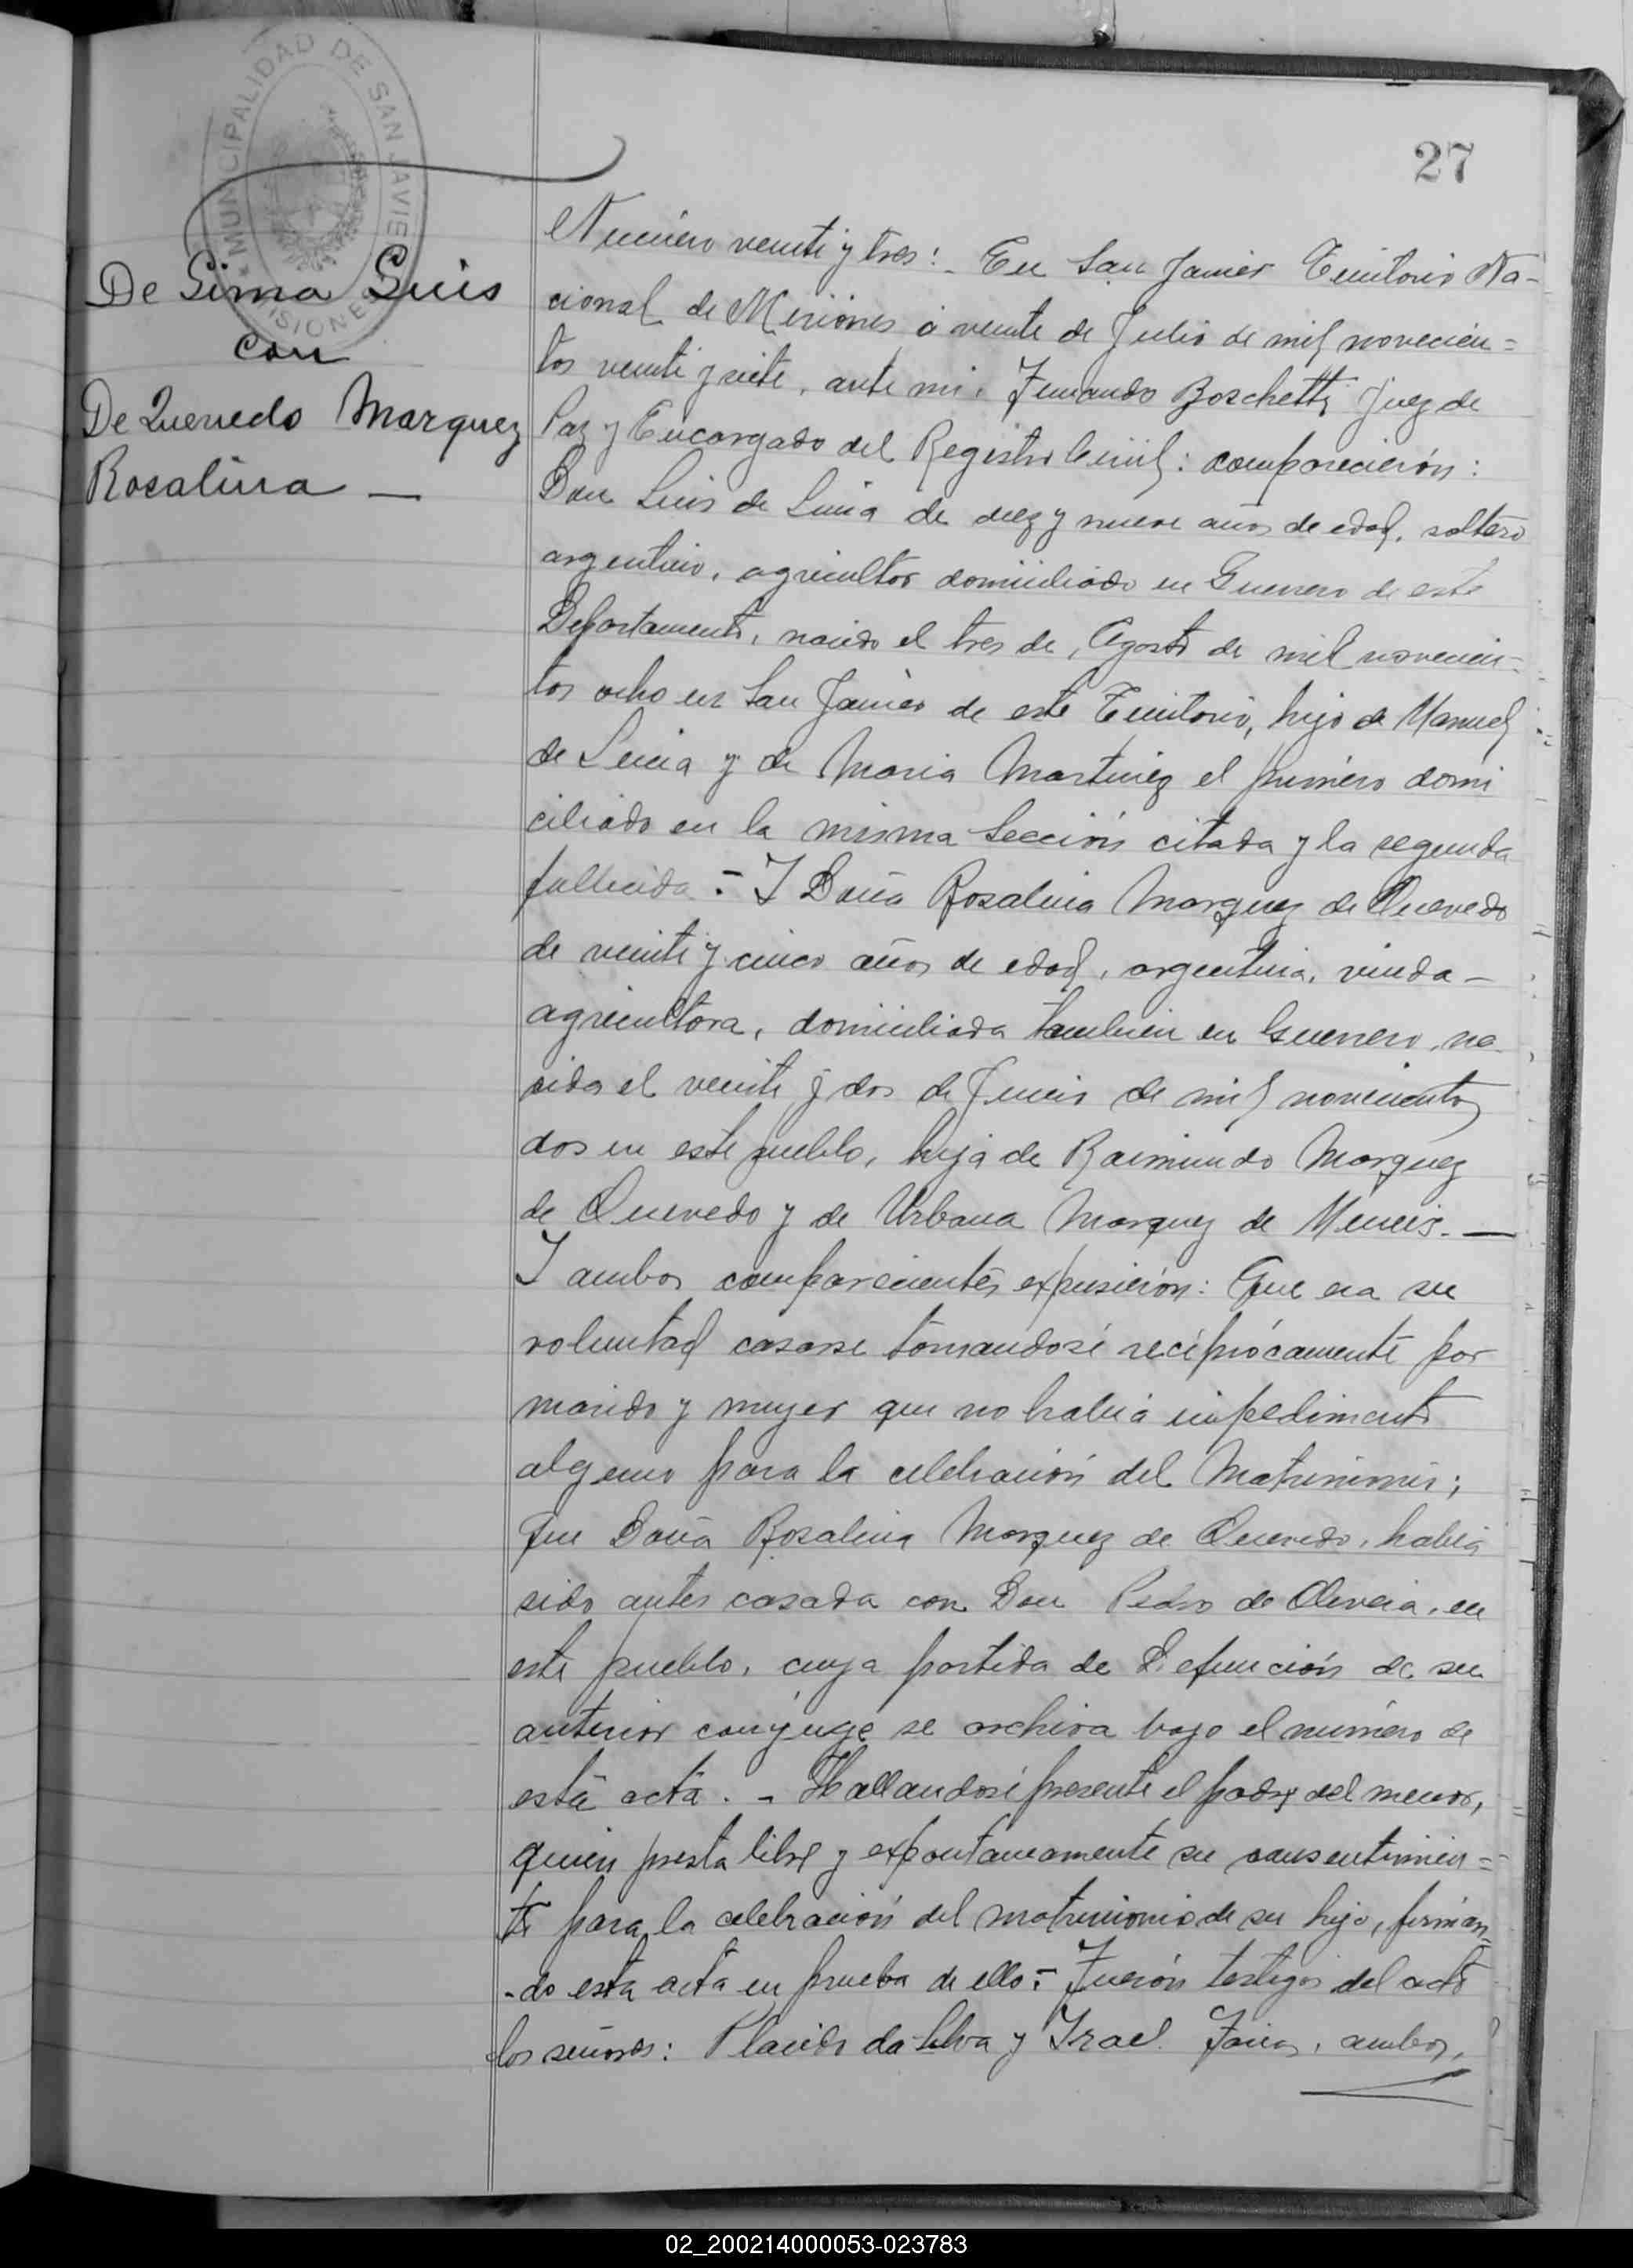 27
MUNICIPALIDAD DE SAN JAVIER
MISIONES
De Lima Luis
con
De Quevedo Marquez
Rosalina —
Número veinte y tres: - En San Javier Territorio Na-
cional de Misiones á veinte de Julio de mil novecien=
tos veinte y siete, ante mi, Fernando Boschetti Juez de
Paz y Encargado del Registro Civil: comparecierón:
Don Luis de Lima de diez y nueve años de edad, soltero
argentino, agricultor domiciliado en Guerrero de este
Departamento, nacido el tres de Agosto de mil novecien-
tos ocho en San Javier de este Territorio, hijo de Manuel
de Lima y de Maria Martinez el primero domi
ciliado en la misma Sección citada y la segunda
fallecida.- I Doña Rosalina Marquez de Quevedo
de veinte y cinco años de edad, argentina, viuda -
agricultora, domiciliada tambien en Guerrero, na
cida el veinte y dos de Junio de mil novecientos
dos en este pueblo, hija de Raimundo Marquez
de Quevedo y de Urbana Marquez de Meneis. —
I ambos comparecientes expusierón: Que era su
voluntad casarse tomandosé recíprócamente por
marido y mujer que no habia impedimento
alguno para la celebración del Matrimonio;
Que Doña Rosalina Marquez de Quevedo, habia
sido antes casada con Don Pedro de Oliveia, en
este pueblo, cuya partida de Defunción de su
anterior conyuge se archiva bajo el numero de
esta acta. - Hallandosé presente el padre del menor,
quien presta libre y expontaneamente su consentimien=
to para la celebración del matrimonio de su hijo, firman
-do esta acta en prueba de ello.- Fuerón testigos del acto
los señores: Placido da Silva y Israel Farias, ambos,
02_200214000053-023783